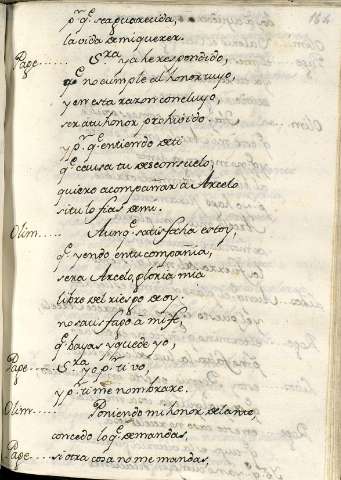 164
pr. qe. sea favorecida,
la vida de mi querer.
Page..... Sra ya he respondido,
qe no cumple al honor tuyo,
y en esta razon concluyo,
ser a tu honor prohibido.
y pr. qe entiendo de ti
qe. causa tu desconsuelo,
quiero acompañar à Arcelo
si tu lo fias de mi.
Olim..... Aunqe. satisfecha estoy,
qe. yendo en tu compañia,
sera Arcelo, gloria mia
libre del riesgo de oy.
no satisfago à mi fe,
qe. bayas y quede yo,
Page..... Sra yo pr. ti vo,
y pr. ti me nombrare.
Olim..... Poniendo mi honor delante,
concedo lo qe. demandas,
Page..... si otra cosa no me mandas,